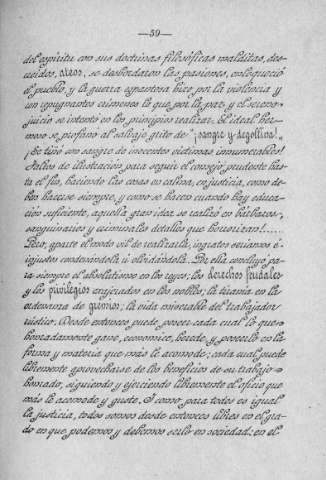 —59—
del espíritu con sus doctrinas filosóficas malditas, des-
creidos, ateos, se desbordaron las pasiones, enloqueció
el pueblo, y la guerra espantosa hizo por la violencia y
con repugnantes crímenes lo que por la paz y el sereno
juicio se intentó en los principios realizar. El ideal her-
moso se profanó al salvaje grito de "¡sangre y degollina!"
¡Se tiñó con sangre de inocentes víctimas innumerables!
Faltos de ilustración para seguir el consejo prudente has-
ta el fin, haciendo las cosas en calma, en justicia, como de-
ben hacerse siempre, y como se hacen cuando hay educa-
ción suficiente, aquella gran idea se realizó en bárbaros,
sanguinarios y criminales detalles que horrorizan!......
Pero, aparte el modo vil de realizarla, ingratos seríamos é
injustos condenándola ú olvidándola. De ella concluyó pa-
ra siempre el absolutismo en los reyes; los derechos feudales
y los privilegios enojosados en los nobles; la tiranía en la
ordenanza de gremios; la vida miserable del trabajador
rústico. Desde entonces puede poseer cada cual lo que
honradamente gane, economice, herede, y poseerlo en la
forma y materia que más le acomode; cada cual puede
libremente aprovecharse de los beneficios de su trabajo
honrado, siguiendo y ejerciendo libremente el oficio que
más le acomode y guste. Y como para todos es igual
la justicia, todos somos desde entonces libres en el gra-
do en que podemos y debemos serlo en sociedad: en el